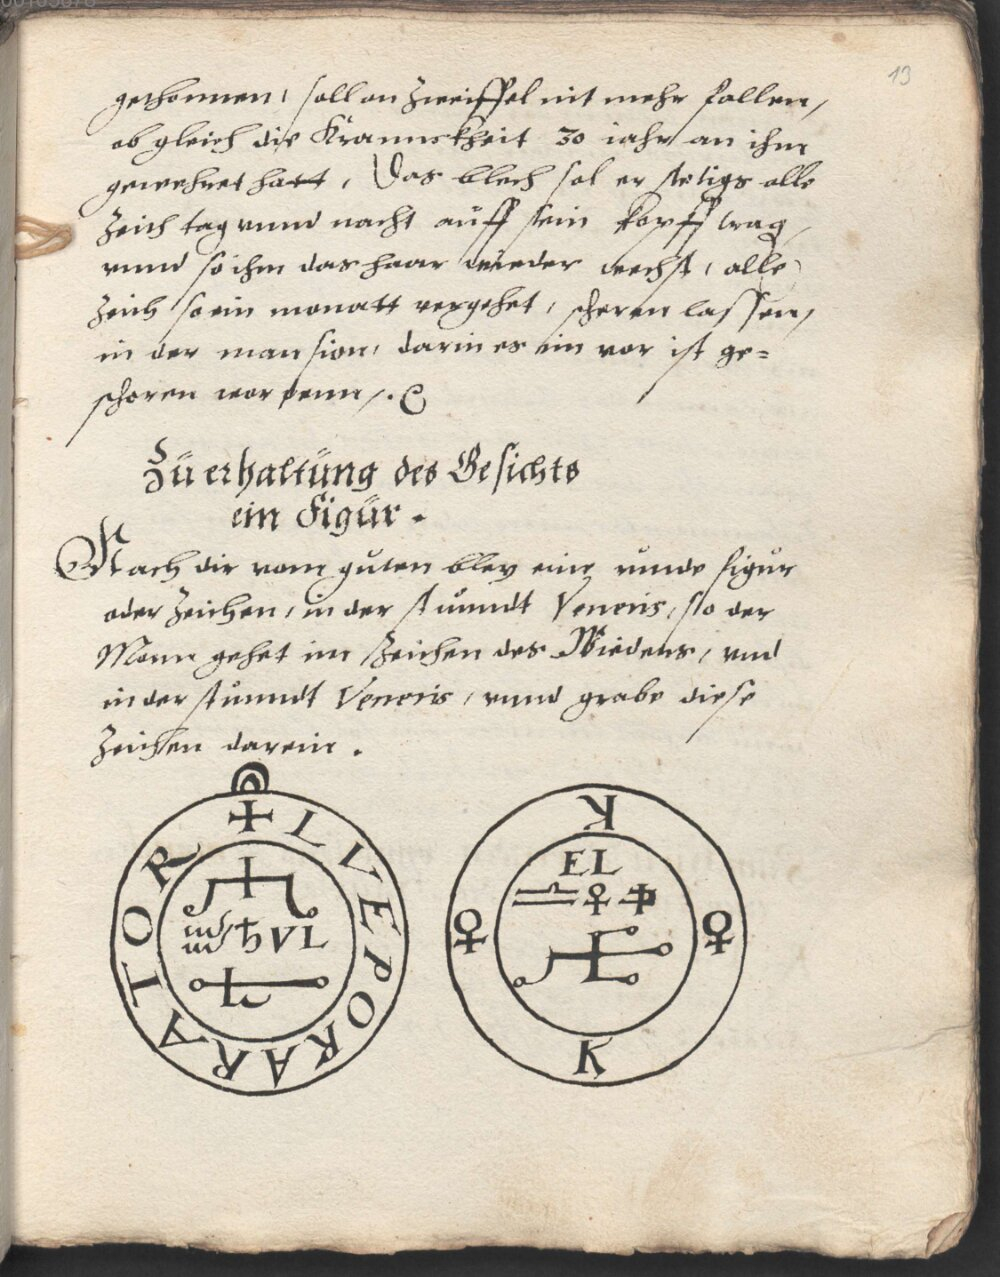 00103078
13
genhommen, soll on Zweiffel nit mehr fallen,
ob gleich die KranncKheit 30 iahr an ihm
gewehret hatt, Das blech sol er stetigs alle
Zeich tag vnnd nacht auff sein Kopff trag,
vnnd so ihm das haar wieder wechst, alle
Zeich so ein monatt vergehet, scheren lassen,
in der mansion, darin es ein vor ist ge=
schoren wordenn /.
Zü erhaltüng des Gesichts
ein Figür .
Mach dir vom guten bley eine runde figur
oder Zeichen, in der stunndt Veneris, so der
Monn gehet im Zeichen des Wieders, vnd
in der stunndt Veneris, vnnd grabe diese
Zeichen darein .
+ LVEPORARATOR
♏ ♄ VL
K
EL
♎ ♀
♀ ♀
K